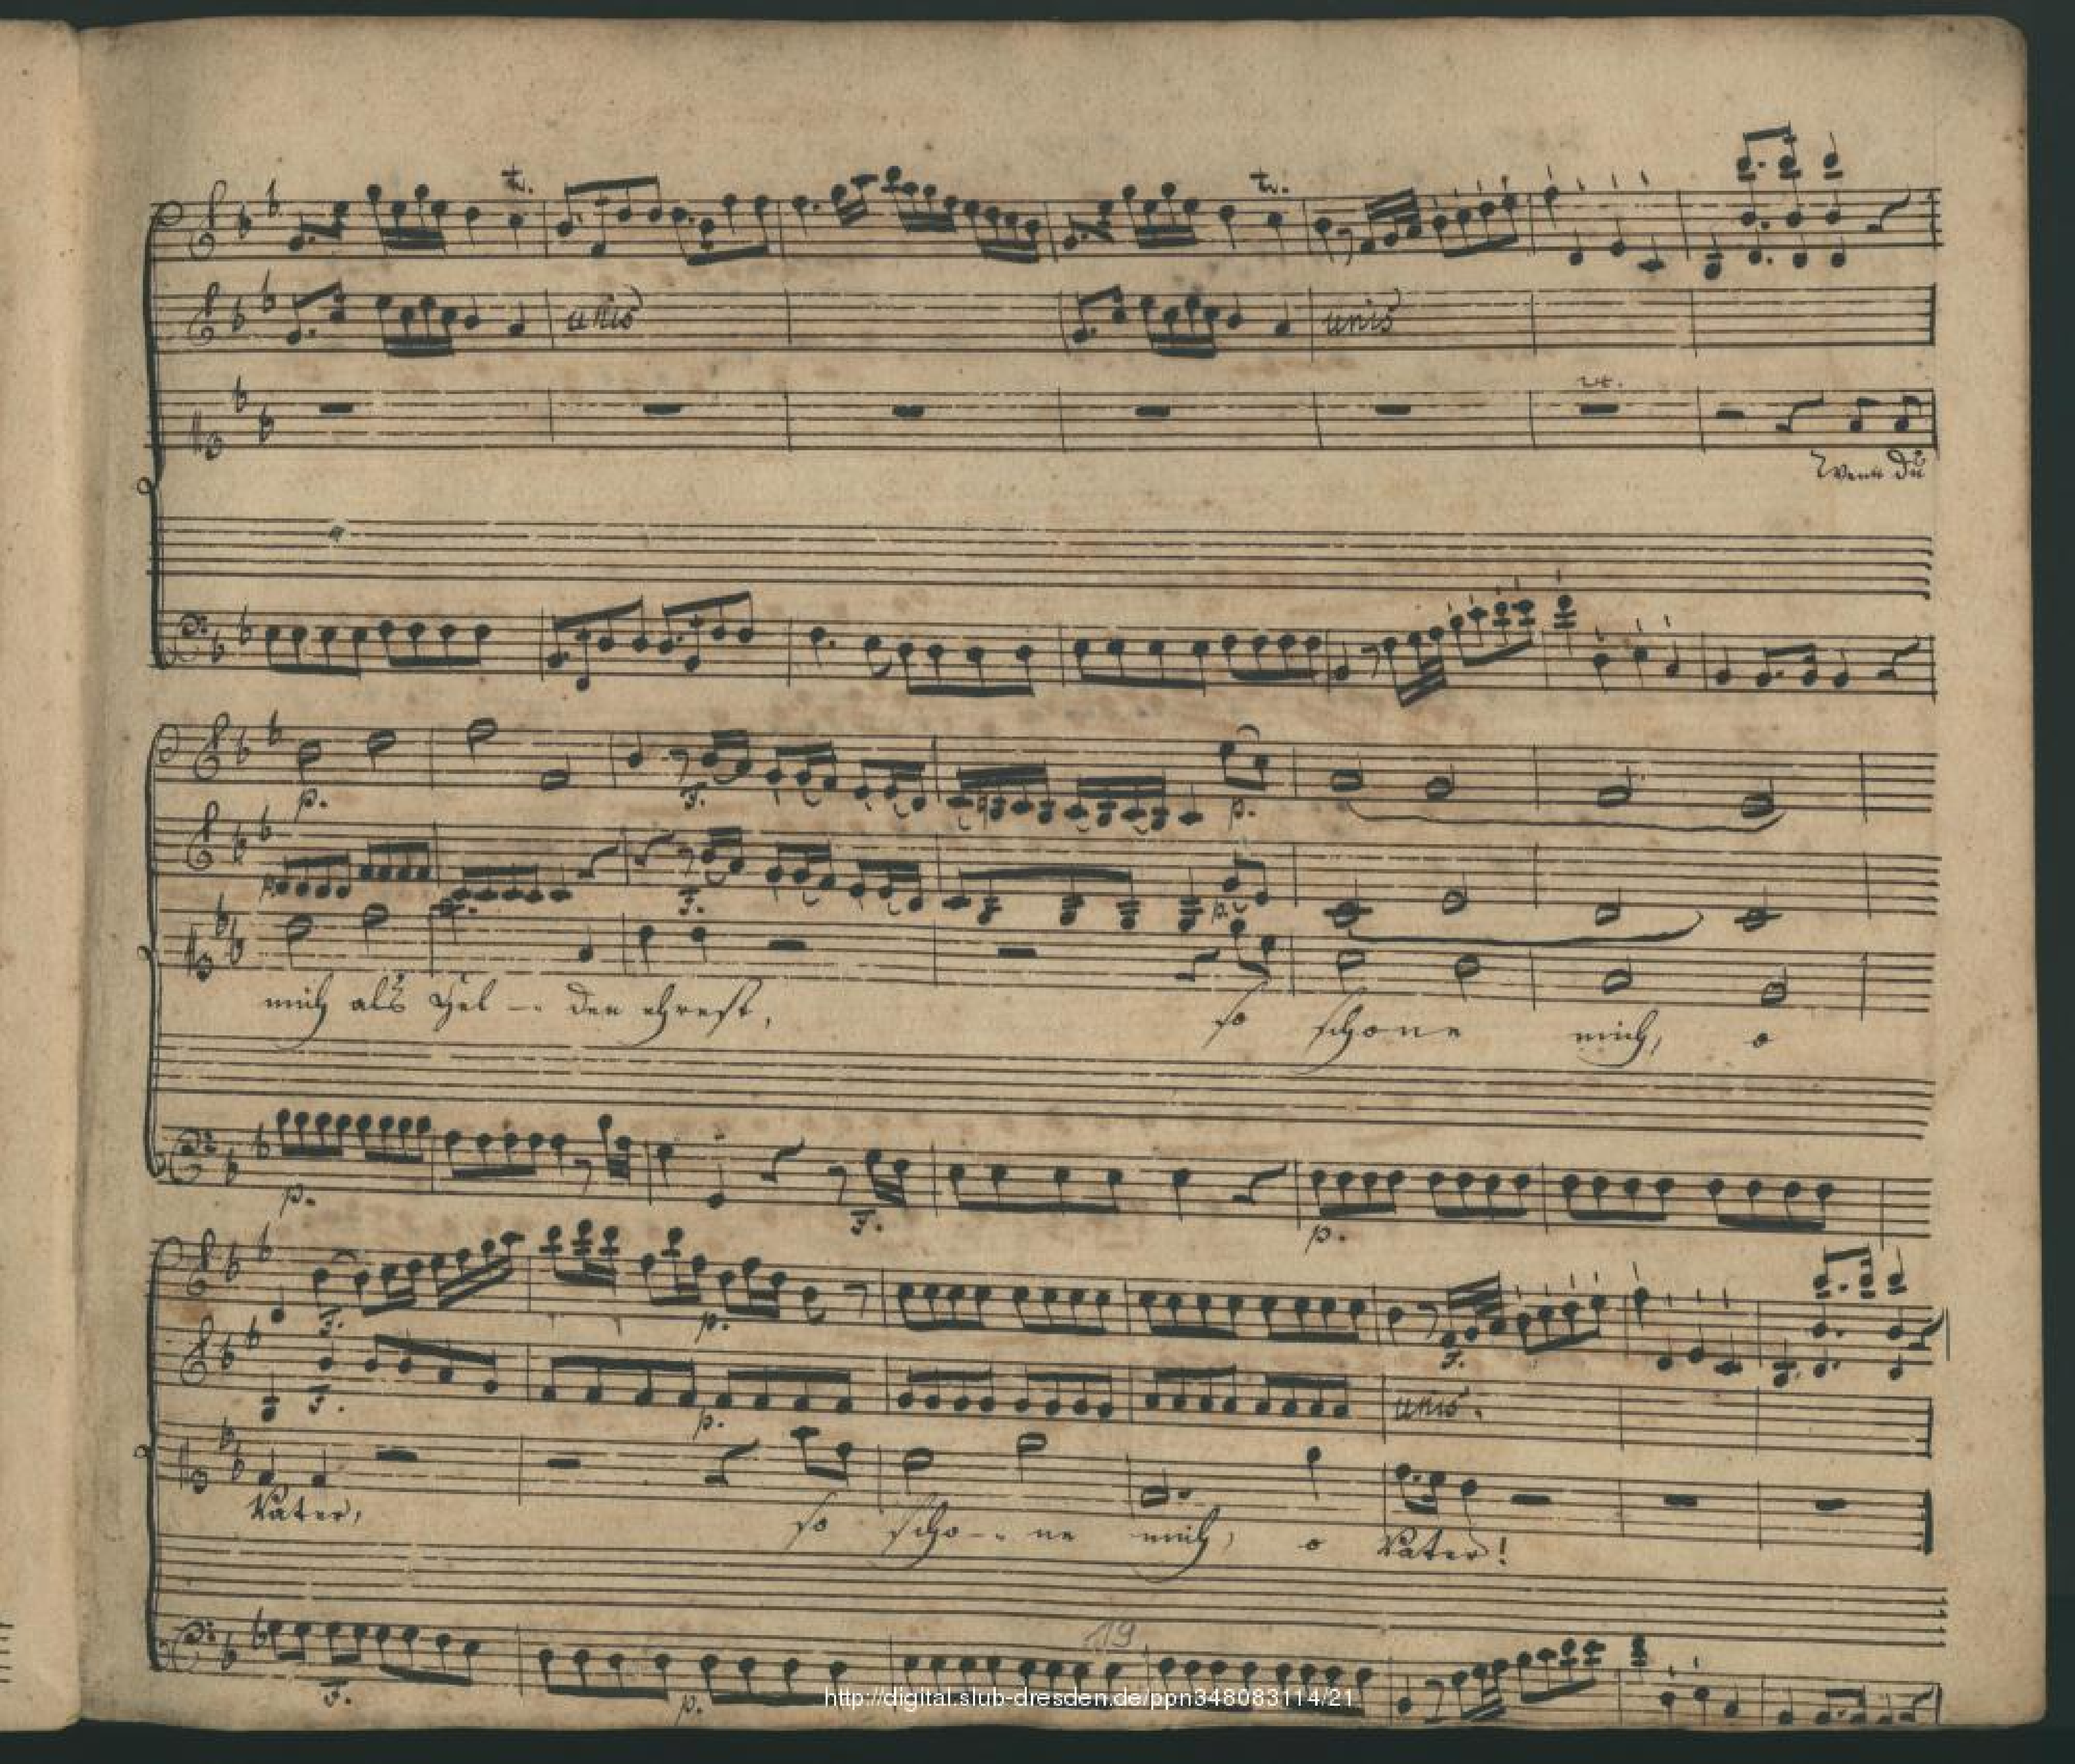 tr. tr.
unis unis
24.
Wenn du
p. F. p.
p. F. p.
mich als Hel -- den ehrest, so schone mich, o
p. F. p.
F. p. F.
F. p. unis.
Vater, so scho -- ne mich, o Vater!
19
F. p.
http://digital.slub-dresden.de/ppn348083114/21